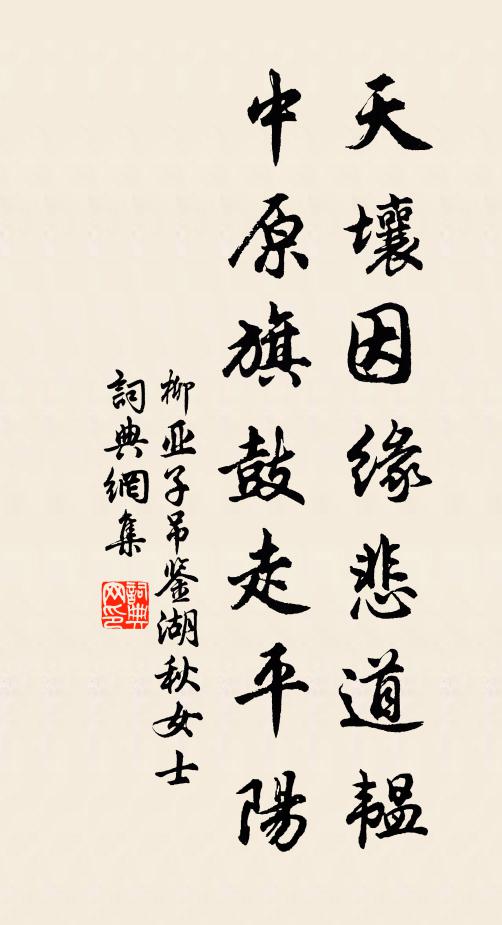 天壤因缘悲道韫
中原旗鼓走平陽
柳亚子吊鉴湖秋女士
詞典網集
詞典网印